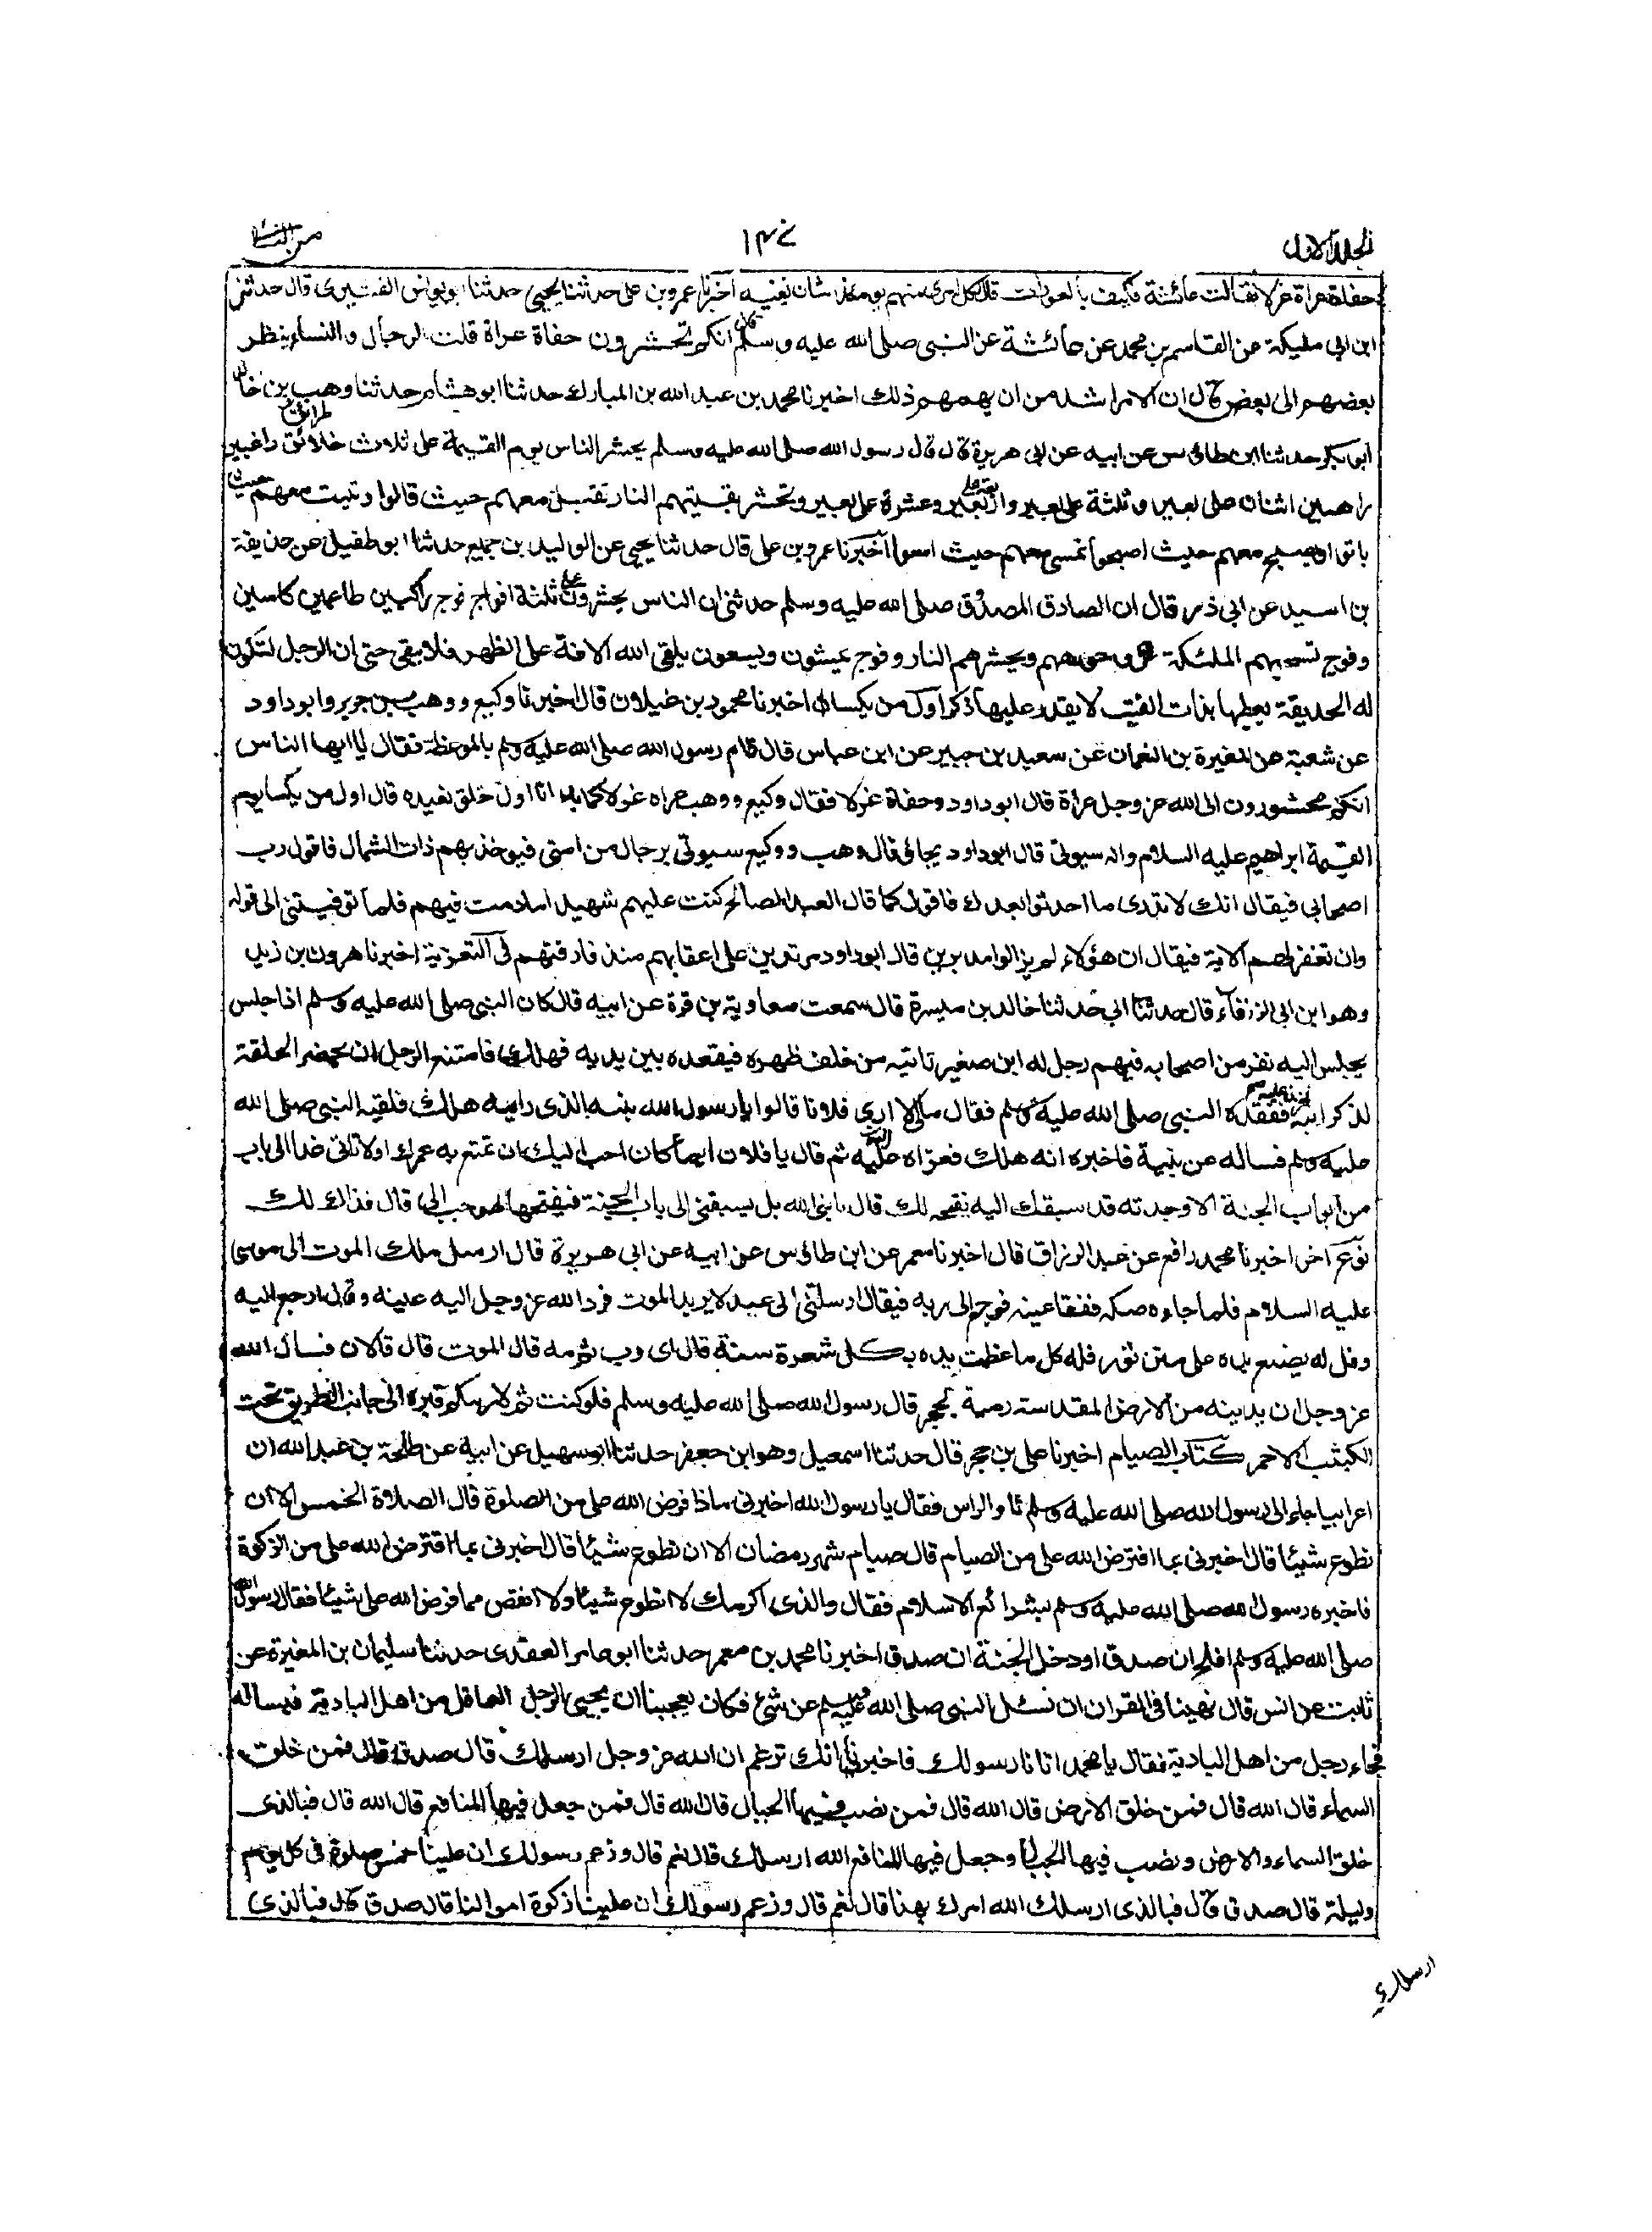 المجلد الاول
١٤٧
من النسائي
حفاة عراة غرلا فقالت عائشة فكيف بالعورات قال لكل امرئ منهم يومئذ شان يغنيه اخبرنا عمرو بن علي حدثنا يحيى حدثنا ابو يونس القشيري قال حدثني
ابن ابي مليكة عن القاسم بن محمد عن عائشة عن النبي صلى الله عليه وسلم قال انكم تحشرون حفاة عراة قلت الرجال والنساء ينظر
بعضهم الى بعض قال ان الامر اشد من ان يهمهم ذلك اخبرنا محمد بن عبد الله بن المبارك حدثنا ابو هشام حدثنا وهيب بن خالد
ابو بكر حدثنا ابن طاؤس عن ابيه عن ابي هريرة قال قال رسول الله صلى الله عليه وسلم يحشر الناس يوم القيمة على ثلاث خلائق طرائق راغبين
راهبين اثنان على بعير وثلثة على بعير واربعة على بعير وعشرة على بعير وتحشر بقيتهم النار تقيل معهم حيث قالوا وتبيت معهم حيث
باتوا وتصبح معهم حيث اصبحوا وتمسي معهم حيث امسوا اخبرنا عمرو بن علي قال حدثنا يحيى عن الوليد بن جميع حدثنا ابو طفيل عن حذيفة
بن اسيد عن ابي ذر قال ان الصادق المصدوق صلى الله عليه وسلم حدثني ان الناس يحشرون على ثلثة افواج فوج راكبين طاعمين كاسين
وفوج تسحبهم الملئكة على وجوههم ويحشرهم النار وفوج يمشون ويسعون يلقي الله الافة على الظهر فلا يبقى حتى ان الرجل لتكون
له الحديقة يعطيها بذات القتب لا يقدر عليها ذكر اول من يكسى اخبرنا محمود بن غيلان قال اخبرنا وكيع ووهب بن جرير وابو داود
عن شعبة عن المغيرة بن النعمان عن سعيد بن جبير عن ابن عباس قال قام رسول الله صلى الله عليه وسلم بالموعظة فقال يا ايها الناس
انكم محشورون الى الله عز وجل عراة قال ابو داود وحفاة غرلا فقال وكيع ووهب عراه غرلا كما بدانا اول خلق نعيده قال اول من يكسى يوم
القيمة ابراهيم عليه السلام وانه سيوتى قال ابو داود يجائ قال وهب ووكيع سيوتى برجال من امتي فيوخذ بهم ذات الشمال فاقول رب
اصحابي فيقال انك لا تدري ما احدثوا بعدك فاقول كما قال العبد الصالح كنت عليهم شهيدا ما دمت فيهم فلما توفيتني الى قوله
وان تغفر لهم الاية فيقال ان هؤلاء لم يزالوا مدبرين قال ابو داود مرتدين على اعقابهم منذ فارقتهم في التعزية اخبرنا هرون بن زيد
وهو ابن ابي الزرقاء قال حدثنا ابي حدثنا خالد بن ميسرة قال سمعت معاوية بن قرة عن ابيه قال كان النبي صلى الله عليه وسلم اذا جلس
يجلس اليه نفر من اصحابه فيهم رجل له ابن صغير تاتيه من خلف ظهره فيقعده بين يديه فهلك فامتنع الرجل ان يحضر الحلقة
لذكر ابنه ففقده النبي صلى الله عليه وسلم فقال مالي لا ارى فلانا قالوا يا رسول الله بنيه الذي رايته هلك فلقيه النبي صلى الله
عليه وسلم فساله عن بنيه فاخبره انه هلك فعزاه عليه ثم قال يا فلان ايما كان احب اليك ان تمتع به عمرك او لا تاتي غدا الى باب
من ابواب الجنة الا وجدته قد سبقك اليه يفتحه لك قال يا نبي الله بل يسبقني الى باب الجنة فيفتحها لهو احب الي قال فذاك لك
نوع اخر اخبرنا محمد رافع عن عبد الرزاق قال اخبرنا معمر عن ابن طاؤس عن ابيه عن ابي هريرة قال ارسل ملك الموت الى موسى
عليه السلام فلما جاءه صكه ففقا عينه فرجع الى ربه فيقال ارسلتني الى عبد لا يريد الموت فرد الله عز وجل اليه عينه وقال ارجع اليه
وقل له يضع يده على متن ثور فله كل ما غطت يده بكل شعرة سنة قال اي رب ثم مه قال الموت قال فالان فسال الله
عز وجل ان يدنيه من الارض المقدسة رمية بحجر قال رسول الله صلى الله عليه وسلم فلو كنت ثم لاريتكم قبره الى جانب الطريق تحت
الكثيب الاحمر كتاب الصيام اخبرنا علي بن حجر قال حدثنا اسمعيل وهو ابن جعفر حدثنا ابو سهيل عن ابيه عن طلحة بن عبد الله ان
اعرابيا جاء الى رسول الله صلى الله عليه وسلم ثائر الراس فقال يا رسول الله اخبرني ماذا فرض الله علي من الصلوة قال الصلاة الخمس الا ان
تطوع شيئا قال اخبرني بما افترض الله علي من الصيام قال صيام شهر رمضان الا ان تطوع شيئا قال اخبرني بما افترض الله علي من الزكوة
فاخبره رسول الله صلى الله عليه وسلم بشرائع الاسلام فقال والذي اكرمك لا اتطوع شيئا ولا انقص مما فرض الله علي شيئا فقال رسول الله
صلى الله عليه وسلم افلح ان صدق او دخل الجنة ان صدق اخبرنا محمد بن معمر حدثنا ابو عامر العقدي حدثنا سليمان بن المغيرة عن
ثابت عن انس قال نهينا في القران ان نسئل النبي صلى الله عليه وسلم عن شئ فكان يعجبنا ان يجيئ الرجل العاقل من اهل البادية فيساله
فجاء رجل من اهل البادية فقال يا محمد اتانا رسولك فاخبرنا انك تزعم ان الله عز وجل ارسلك قال صدق قال فمن خلق
السماء قال الله قال فمن خلق الارض قال الله قال فمن نصب فيها الجبال قال الله قال فمن جعل فيها المنافع قال الله قال فبالذي
خلق السماء والارض ونصب فيها الجبال وجعل فيها المنافع الله ارسلك قال نعم قال وزعم رسولك ان علينا خمس صلوة في كل يوم
وليلة قال صدق قال فبالذي ارسلك الله امرك بهذا قال نعم قال وزعم رسولك ان علينا زكوة اموالنا قال صدق قال فبالذي
ارسلك